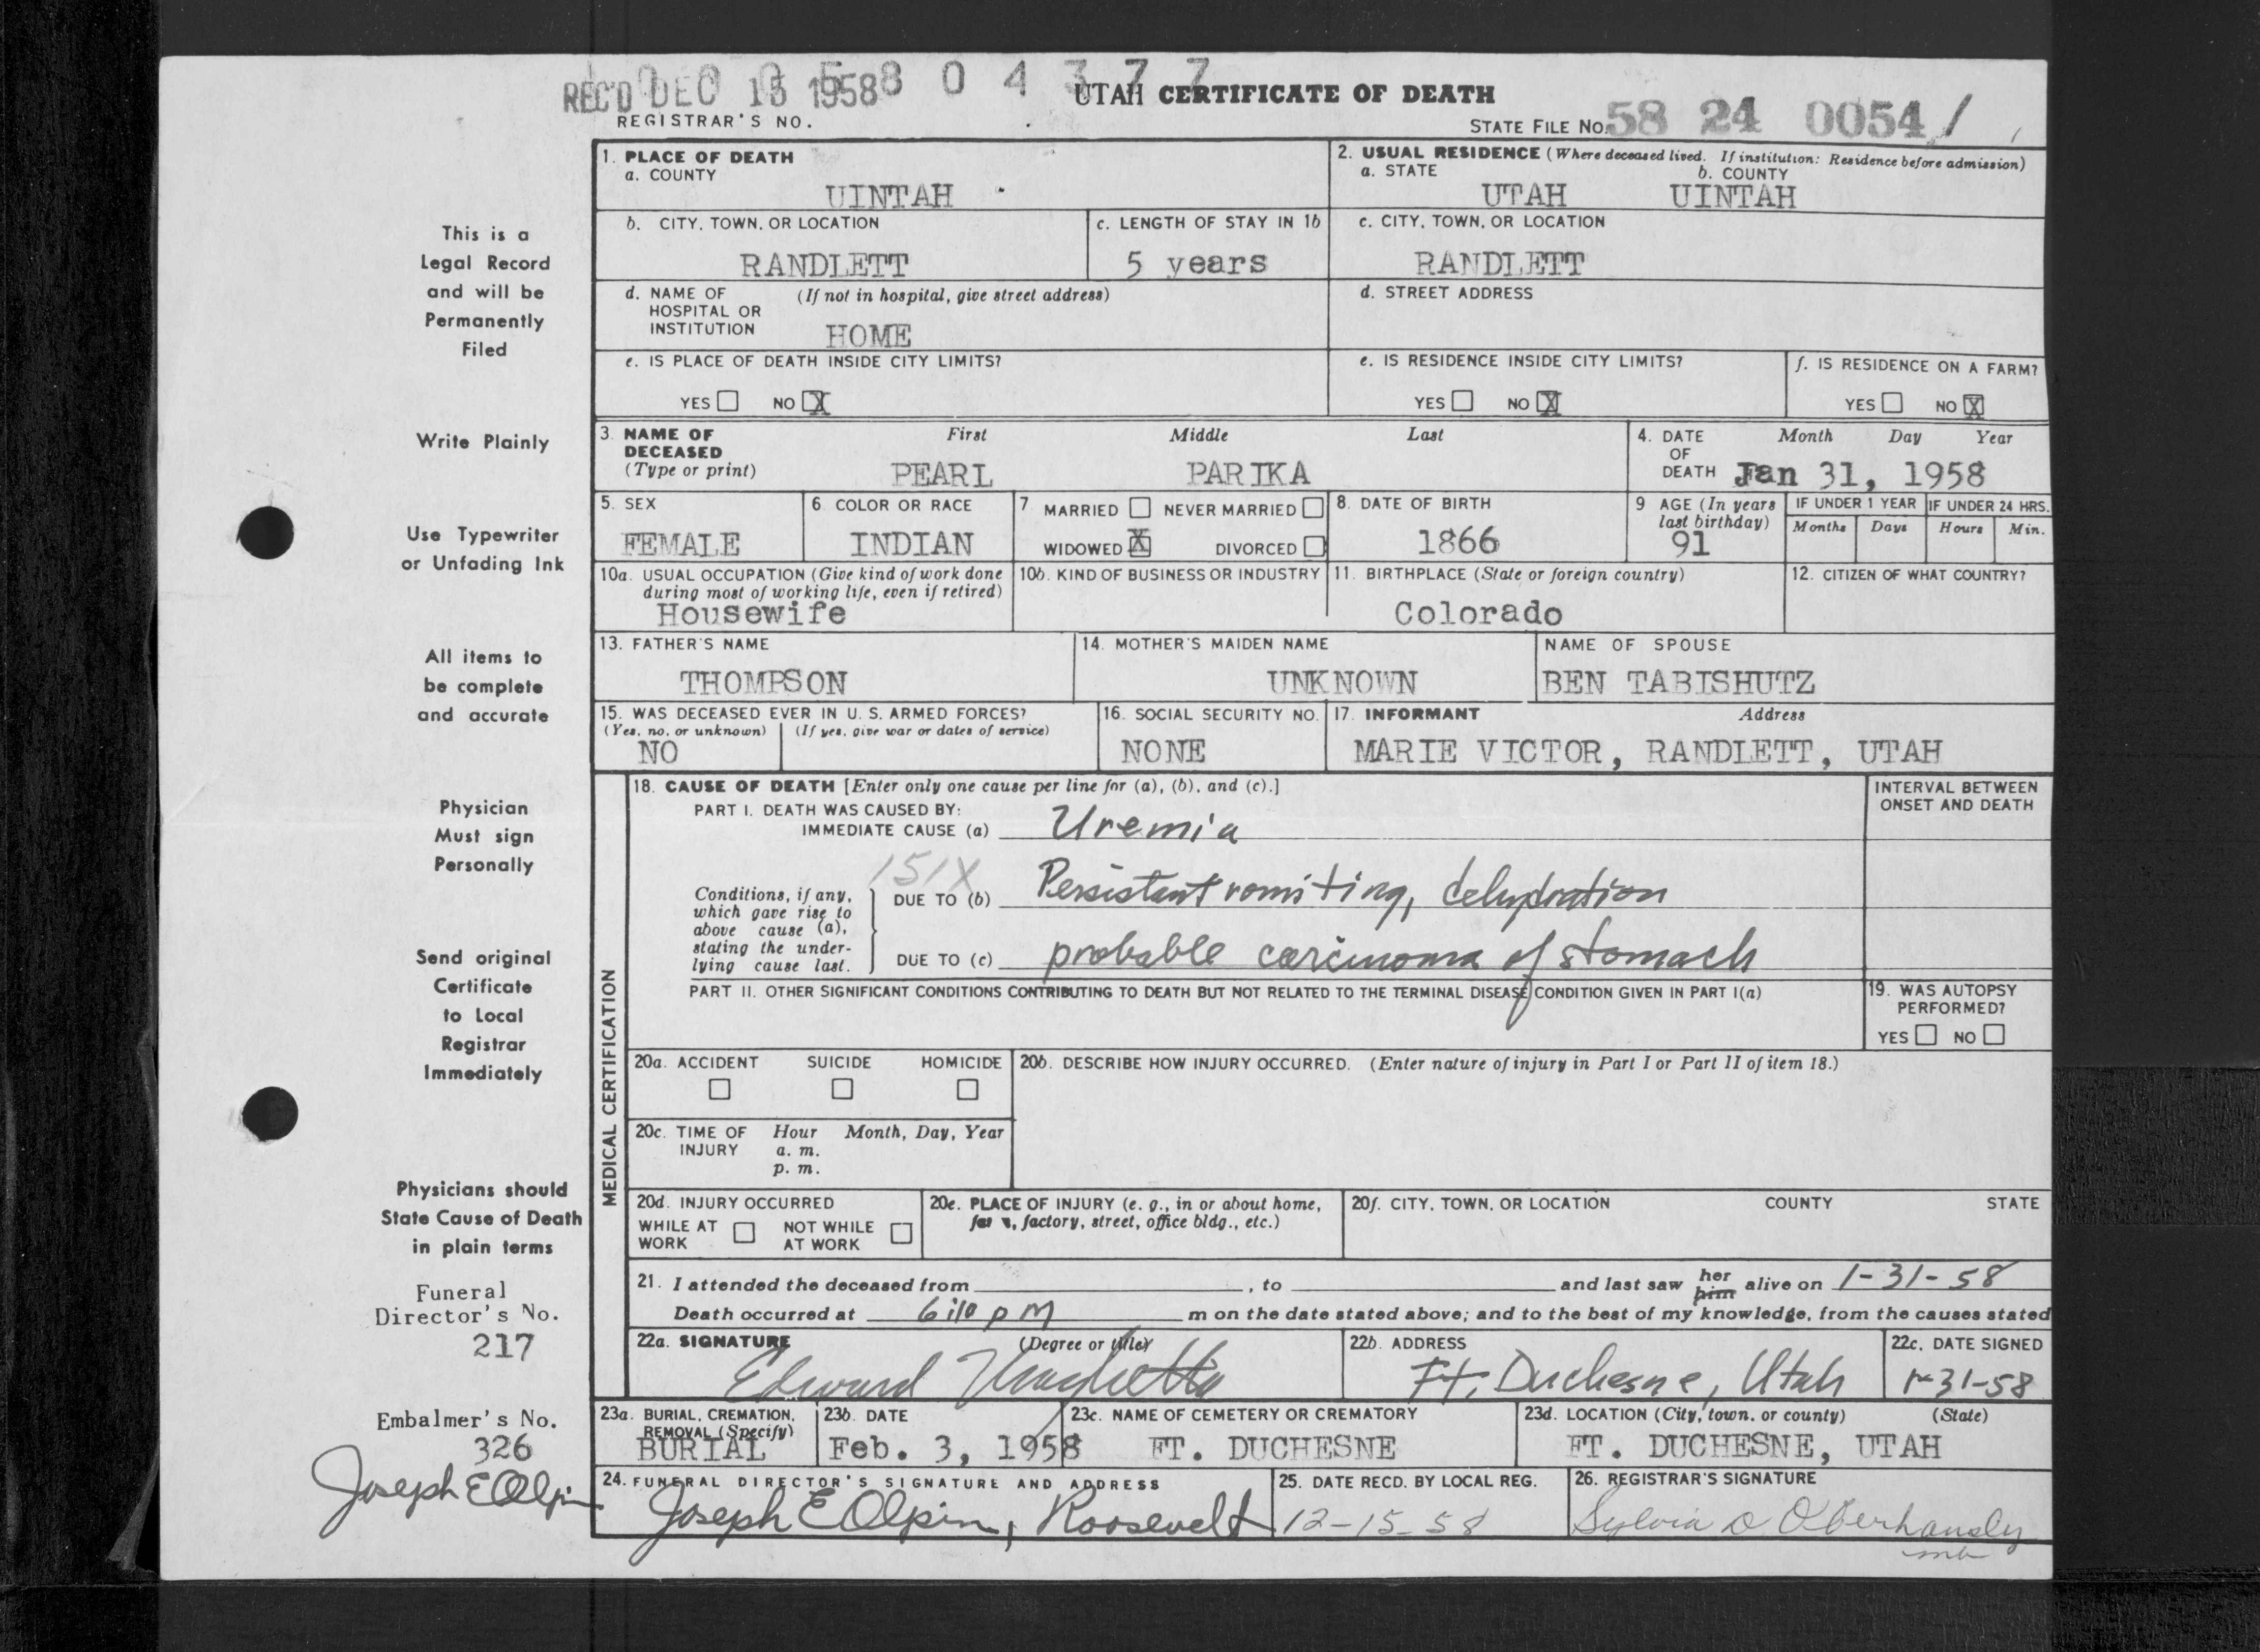 REC'D DEC 15 1958
UTAH CERTIFICATE OF DEATH
REGISTRAR'S NO.
STATE FILE NO. 58 24 0054
1. PLACE OF DEATH
a. COUNTY
UINTAH
2. USUAL RESIDENCE (Where deceased lived. If institution: Residence before admission)
a. STATE b. COUNTY
UTAH UINTAH
b. CITY, TOWN, OR LOCATION
RANDLETT
c. LENGTH OF STAY IN 1b
5 years
c. CITY, TOWN, OR LOCATION
RANDLETT
d. NAME OF HOSPITAL OR INSTITUTION (If not in hospital, give street address)
HOME
d. STREET ADDRESS
e. IS PLACE OF DEATH INSIDE CITY LIMITS?
YES NO X
e. IS RESIDENCE INSIDE CITY LIMITS?
YES NO X
f. IS RESIDENCE ON A FARM?
YES NO X
3. NAME OF DECEASED (Type or print) First Middle Last
PEARL PARIKA
4. DATE OF DEATH Month Day Year
Jan 31, 1958
5. SEX
FEMALE
6. COLOR OR RACE
INDIAN
7. MARRIED NEVER MARRIED
WIDOWED X DIVORCED
8. DATE OF BIRTH
1866
9 AGE (In years last birthday)
91
IF UNDER 1 YEAR IF UNDER 24 HRS.
Months Days Hours Min.
10a. USUAL OCCUPATION (Give kind of work done during most of working life, even if retired)
Housewife
10b. KIND OF BUSINESS OR INDUSTRY
11. BIRTHPLACE (State or foreign country)
Colorado
12. CITIZEN OF WHAT COUNTRY?
13. FATHER'S NAME
THOMPSON
14. MOTHER'S MAIDEN NAME
UNKNOWN
NAME OF SPOUSE
BEN TABISHUTZ
15. WAS DECEASED EVER IN U. S. ARMED FORCES?
(Yes, no, or unknown) (If yes, give war or dates of service)
NO
16. SOCIAL SECURITY NO.
NONE
17. INFORMANT Address
MARIE VICTOR, RANDLETT, UTAH
MEDICAL CERTIFICATION
18. CAUSE OF DEATH [Enter only one cause per line for (a), (b), and (c).]
INTERVAL BETWEEN ONSET AND DEATH
PART I. DEATH WAS CAUSED BY:
IMMEDIATE CAUSE (a) Uremia
151X
Conditions, if any, which gave rise to above cause (a), stating the underlying cause last.
DUE TO (b) Persistant vomiting, dehydration
DUE TO (c) probable carcinoma of stomach
PART II. OTHER SIGNIFICANT CONDITIONS CONTRIBUTING TO DEATH BUT NOT RELATED TO THE TERMINAL DISEASE CONDITION GIVEN IN PART I(a)
19. WAS AUTOPSY PERFORMED?
YES NO
20a. ACCIDENT SUICIDE HOMICIDE
20b. DESCRIBE HOW INJURY OCCURRED. (Enter nature of injury in Part I or Part II of item 18.)
20c. TIME OF INJURY Hour Month, Day, Year
a. m.
p. m.
20d. INJURY OCCURRED
WHILE AT WORK NOT WHILE AT WORK
20e. PLACE OF INJURY (e. g., in or about home, factory, street, office bldg., etc.)
20f. CITY, TOWN, OR LOCATION COUNTY STATE
21. I attended the deceased from , to and last saw her him alive on 1-31-58
Death occurred at 6:10 p M m on the date stated above; and to the best of my knowledge, from the causes stated
22a. SIGNATURE (Degree or title)
Edward
22b. ADDRESS
Ft. Duchesne, Utah
22c. DATE SIGNED
1-31-58
23a. BURIAL, CREMATION, REMOVAL (Specify)
BURIAL
23b. DATE
Feb. 3, 1958
23c. NAME OF CEMETERY OR CREMATORY
FT. DUCHESNE
23d. LOCATION (City, town, or county) (State)
FT. DUCHESNE, UTAH
24. FUNERAL DIRECTOR'S SIGNATURE AND ADDRESS
Joseph E Olpin, Roosevelt
25. DATE RECD. BY LOCAL REG.
12-15-58
26. REGISTRAR'S SIGNATURE
Sylvia D Oberhansly
This is a
Legal Record
and will be
Permanently
Filed
Write Plainly
Use Typewriter
or Unfading Ink
All items to
be complete
and accurate
Physician
Must sign
Personally
Send original
Certificate
to Local
Registrar
Immediately
Physicians should
State Cause of Death
in plain terms
Funeral
Director's No.
217
Embalmer's No.
326
Joseph E Olpin